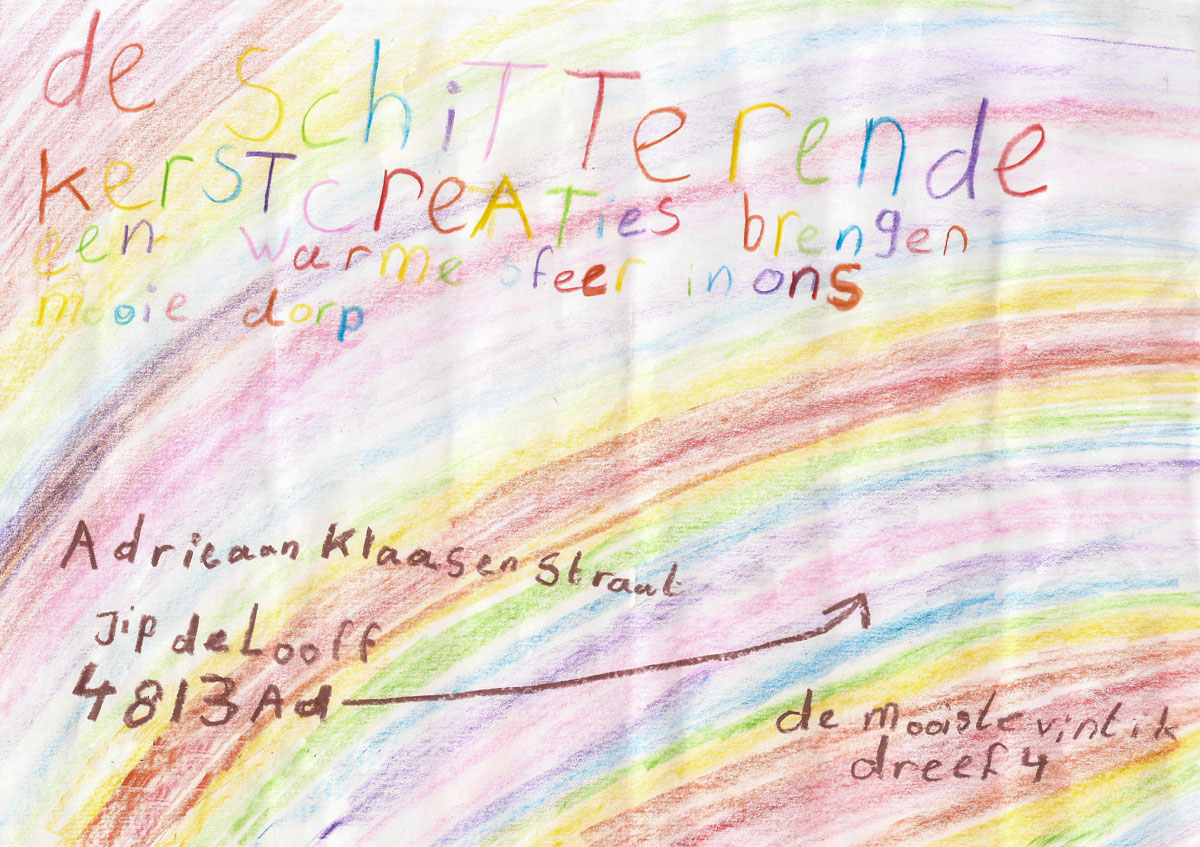 de SchiTTerende
kersTcreATies brengen
een warme sfeer in ons
mooie dorp
Adrieaan Klaasen Straat
Jip de Looff
4813 Ad
de mooiste vint ik
dreef 4